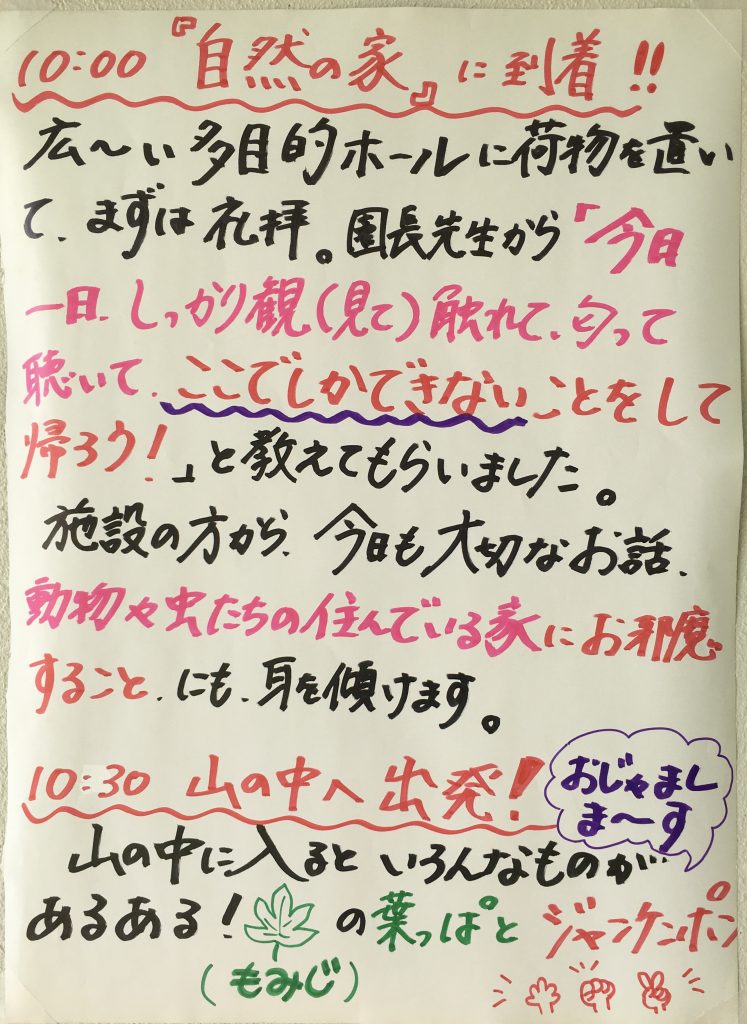 10:00『自然の家』に到着!!
広〜い多目的ホールに荷物を置い
て、まずは礼拝。園長先生から「今日
一日、しっかり観(見て)触れて、匂って
聴いて、ここでしかできないことをして
帰ろう!」と教えてもらいました。
施設の方から、今日も大切なお話、
動物や虫たちの住んでいる家にお邪魔
すること、にも、耳を傾けます。
10:30 山の中へ出発!
おじゃまし
ま〜す
山の中に入るといろんなものが
あるある!の葉っぱとジャンケンポン
(もみじ)